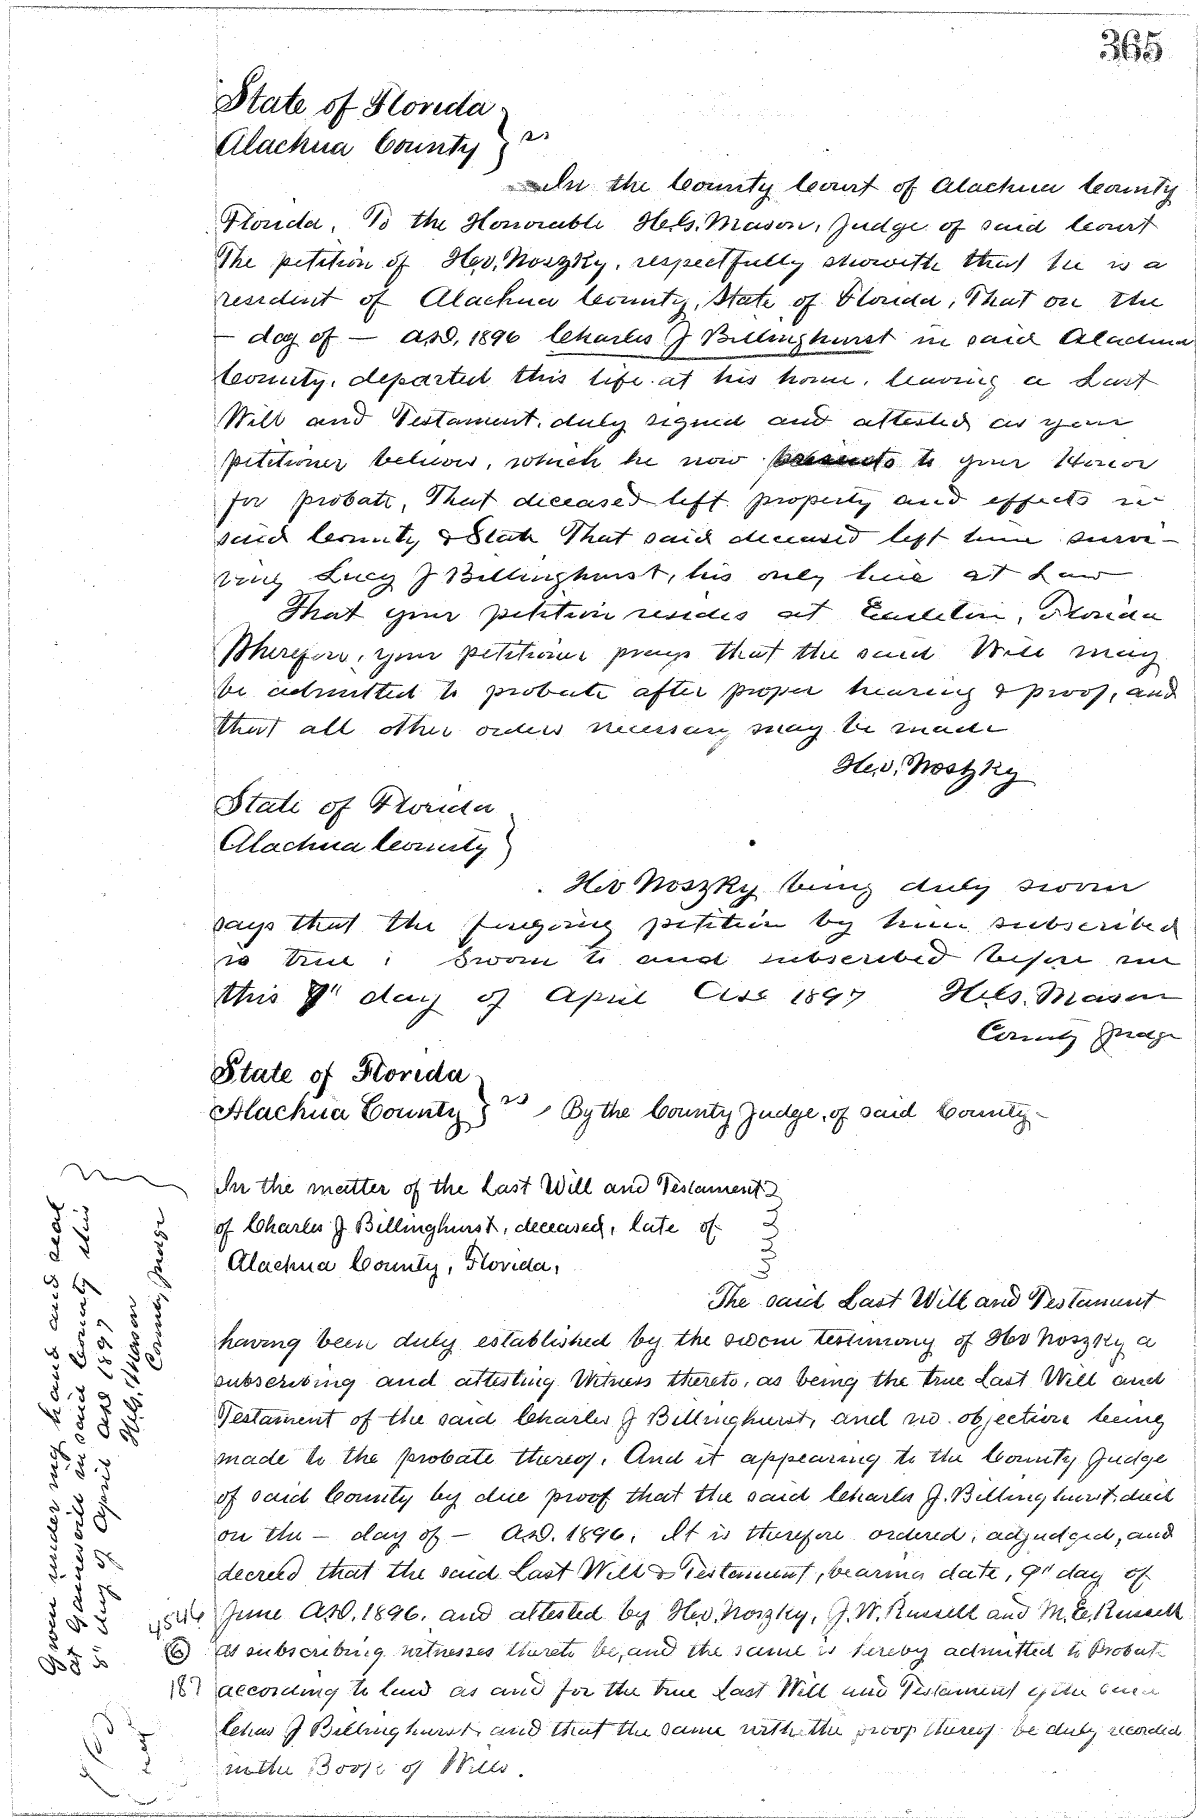 365
State of Florida
Alachua County } ss
In the County Court of Alachua County
Florida, To the Honorable H.G. Mason, Judge of said Court
The petition of H.v. Noszky, respectfully showeth that he is a
resident of Alachua County, State of Florida, That on the
— day of — A.D. 1896 Charles J Billinghurst in said Alachua
County, departed this life at his home, leaving a Last
Will and Testament, duly signed and attested as your
petitioner believes, which he now presents to your Honor
for probate, That deceased left property and effects in
said County & State That said deceased left him survi-
ving Lucy J Billinghurst, his only heir at Law
That your petition resides at Earleton, Florida
Wherefore, your petitioner prays that the said Will may
be admitted to probate after proper hearing & proof, and
that all other orders necessary may be made
H.v. Noszky
State of Florida
Alachua County }
H v Noszky being duly sworn
says that the foregoing petition by him subscribed
is true : Sworn to and subscribed before me
this 7" day of April 1897 H.G. Mason
County Judge
State of Florida
Alachua County } ss, By the County Judge, of said County—
In the matter of the Last Will and Testament
of Charles J Billinghurst, deceased, late of
Alachua County, Florida,
The said Last Will and Testament
having been duly established by the sworn testimony of H v Noszky a
subscribing and attesting Witness thereto, as being the true Last Will and
Testament of the said Charles J Billinghurst, and no objection being
made to the probate thereof, And it appearing to the County Judge
of said County by due proof that the said Charles J. Billinghurst, died
on the — day of — A.D. 1896, It is therefore ordered, adjudged, and
decreed that the said Last Will & Testament, bearing date, 9" day of
June A.D. 1896, and attested by H.v. Noszky, J.W. Russell and M.E. Russell
as subscribing witnesses thereto be, and the same is hereby admitted to Probate
according to law as and for the true Last Will and Testament of the said
Chas J Billinghurst, and that the same with the proof thereof be duly recorded
in the Book of Wills.
Given under my hand and seal
at Gainesville in said County this
8" day of April 1897
H.G. Mason
County Judge
4546
6
187